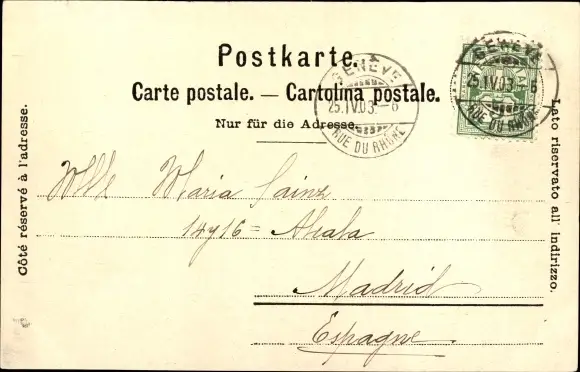 Postkarte.
Carte postale. — Cartolina postale.
Nur für die Adresse.
GENÈVE
25.IV.03.–6
RUE DU RHÔNE
GENÈVE
25.IV.03.–6
RUE DU RHÔNE
Côté réservé à l'adresse.
Lato riservato all' indirizzo.
Mlle Maria Sainz
14y16= Alcala
Madrid
Espagne.